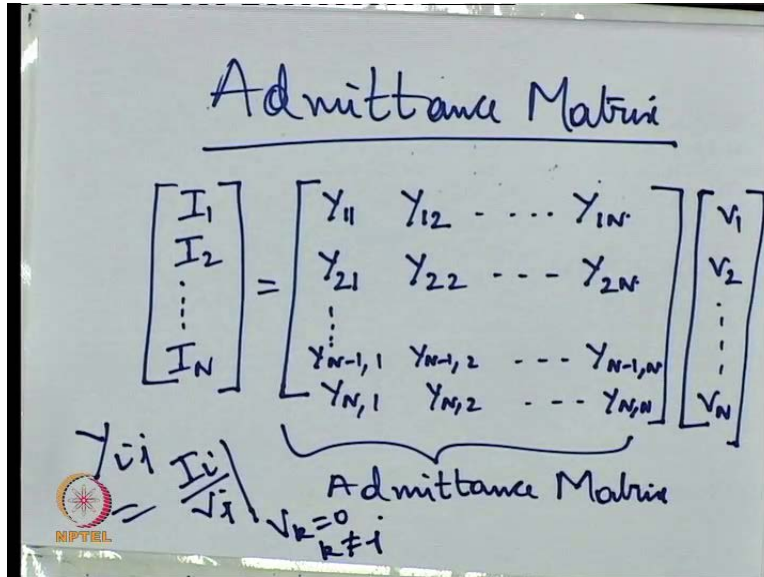 Admittance Matrix
[I1 I2 ⋮ IN] = [Y11 Y12 ----- Y1N] [V1
Y21 Y22 --- Y2N V2
⋮ ⋮
YN-1,1 YN-1,2 --- YN-1,N
YN,1 YN,2 --- YN,N] VN]
Admittance Matrix
Yij = Ii/Vj | Vk=0 k≠j
NPTEL